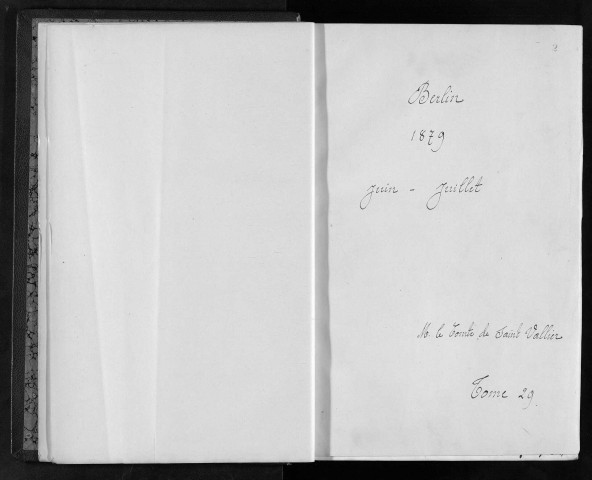 Berlin
1879
Juin - Juillet
M. le Comte de Saint Vallier
Tome 29.